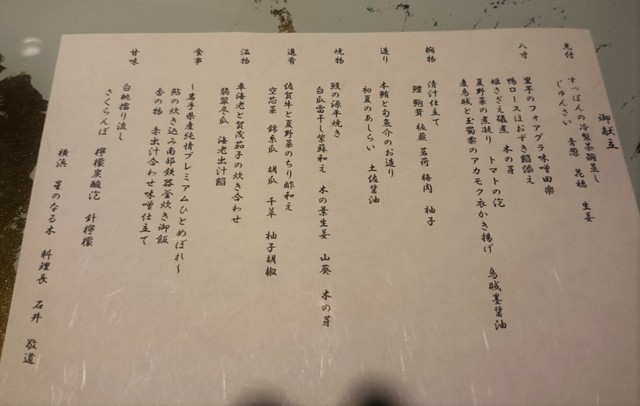 御献立
先付
すっぽんの冷製茶碗蒸し
じゅんさい 青葱 花穂 生姜
八寸
里芋のフォアグラ味噌田楽
鴨ロースほおずき餡添え
姫さざえ磯煮 木の芽
夏野菜の煮凝り トマトの泡
麦烏賊と玉蜀黍のアカモク衣かき揚げ 烏賊墨醤油
椀物
清汁仕立て
鱧 鮑茸 板蕨 茗荷 梅肉 柚子
造り
本鮪と旬魚介のお造り
初夏のあしらい 土佐醤油
焼物
鰻の源平焼き
白瓜雷干し紫蘇和え 木の葉生姜 山葵 木の芽
進肴
佐賀牛と夏野菜のちり酢和え
空芯菜 錦糸瓜 胡瓜 千草 柚子胡椒
温物
車海老と賀茂茄子の炊き合わせ
翡翠冬瓜 海老出汁餡
食事
~岩手県産純情プレミアムひとめぼれ~
鮎の炊き込み南部鉄器釜炊き御飯
香の物 赤出汁合わせ味噌仕立て
甘味
白桃擂り流し
さくらんぼ 檸檬炭酸泡 針檸檬
横浜 星のなる木 料理長 石井 敬道